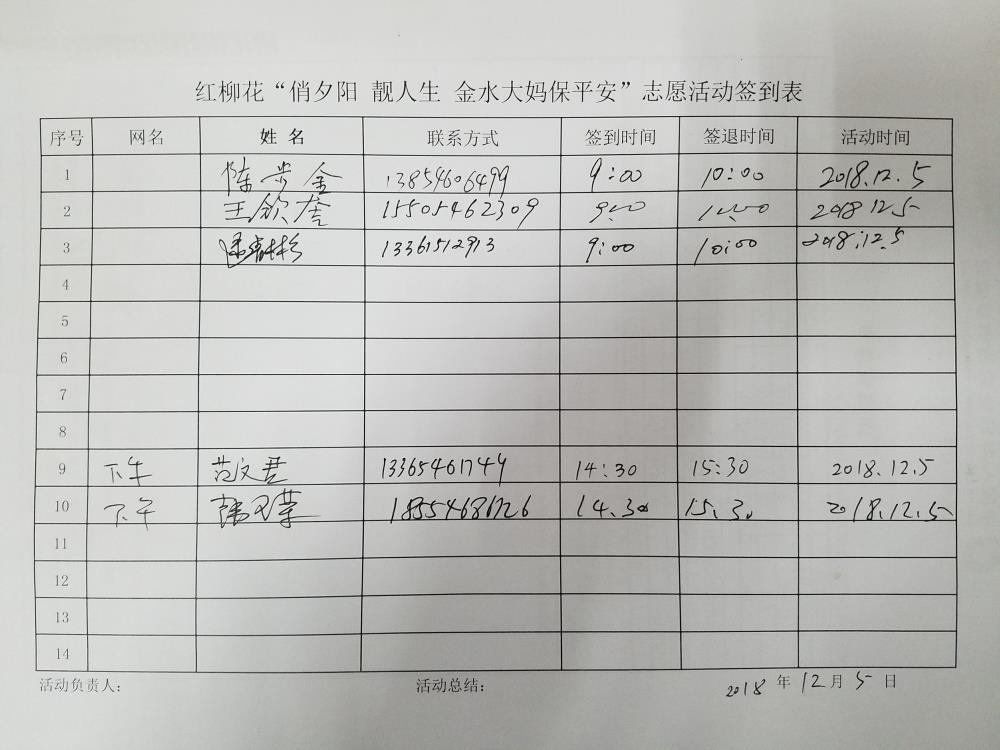 红柳花“俏夕阳 靓人生 金水大妈保平安”志愿活动签到表
序号 网名 姓名 联系方式 签到时间 签退时间 活动时间
1 陈岩金 13854606499 9:00 10:00 2018.12.5
2 王欽奎 15505462309 9:00 10:00 2018 12.5
3 13361512913 9:00 10:00 2018.12.5
4
5
6
7
8
9 下午 范文君 13365461749 14:30 15:30 2018.12.5
10 下午 18554686726 14.30 15.30 2018.12.5
11
12
13
14
活动负责人: 活动总结: 2018年12月5日